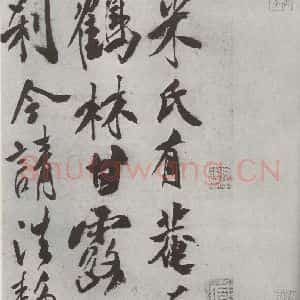 米氏有菴
鶴林甘露
刹今請法
Shufawang.CN